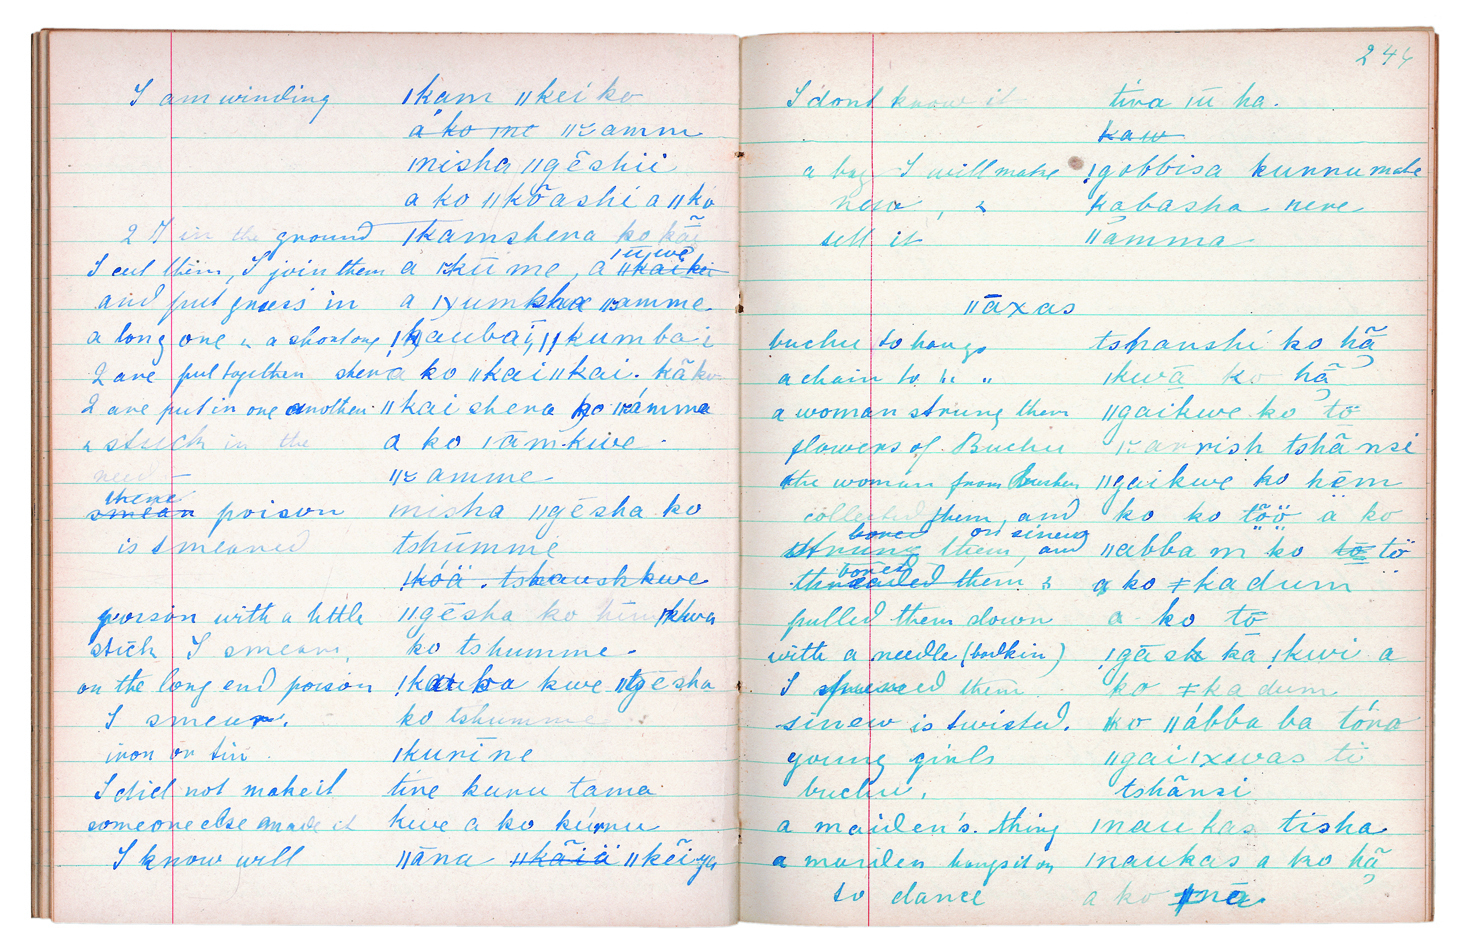 I am winding ǀkam ǁkei ko
a ko me ǁamm
misha ǁgēshii
a ko ǁkõashi a ǁko
2 I in the ground ǀkamshena ko kãi
ǀūwe
I cut them, I join them a kūme, a ǁkaike
and put grass in a umsha amme
a long one & a short one ǃkaubai, ǀkumbai
2 are put together shena ko ǁkaiǁkai. kãko
2 are put in one another ǁkai shena ko ǁámma
& stuck in the a ko ǀāmkwe
reed ǁamme
there
smear poison misha ǁgēsha ko
is smeared tshūmme
ǃkóä. tshaushkwe
poison with a little ǁgēsha ko ǀkhwa
stick I smear, ko tshumme
on the long end poison ǃkauba kwe ǁgēsha
I smear. ko tshumme
iron or tin ǀkurīne
I did not make it tire kuru tama
someone else made it kwe a ko kúrru
I know well ǁāna ǁkãiä ǁkēiya
246
I dont know it tira ǀū ha.
kaw
a bag I will make ǃgobbisa kurru make
now, & kabasha nere
sell it ǁāmma
ǁāxas
buchu to hangs tshanshi ko hã
a chain to " " ǀkwā ko hã
a woman strung them ǁgaikwe ko tō
flowers of Buchu arrish tshãnsi
the woman from bushes ǁgaikwe ko hēm
collected them, and ko ko töö ä ko
bored on sinew
strung them, and ǁabba m ko tō tö
bored
threaded them & a ko ǂkadum
pulled them down a ko tō
with a needle (bodkin) ǃgāsh ka ǃkwi a
I them ko ǂkadum
sinew is twisted. ko ǁábba ba tóra
young girls ǁgaiǀxwas ti
buchu. tshãnsi
a maiden's thing ǀnaukas tisha
a maiden hangs it on ǀnaukas a ko hã
to dance a ko ǂnā